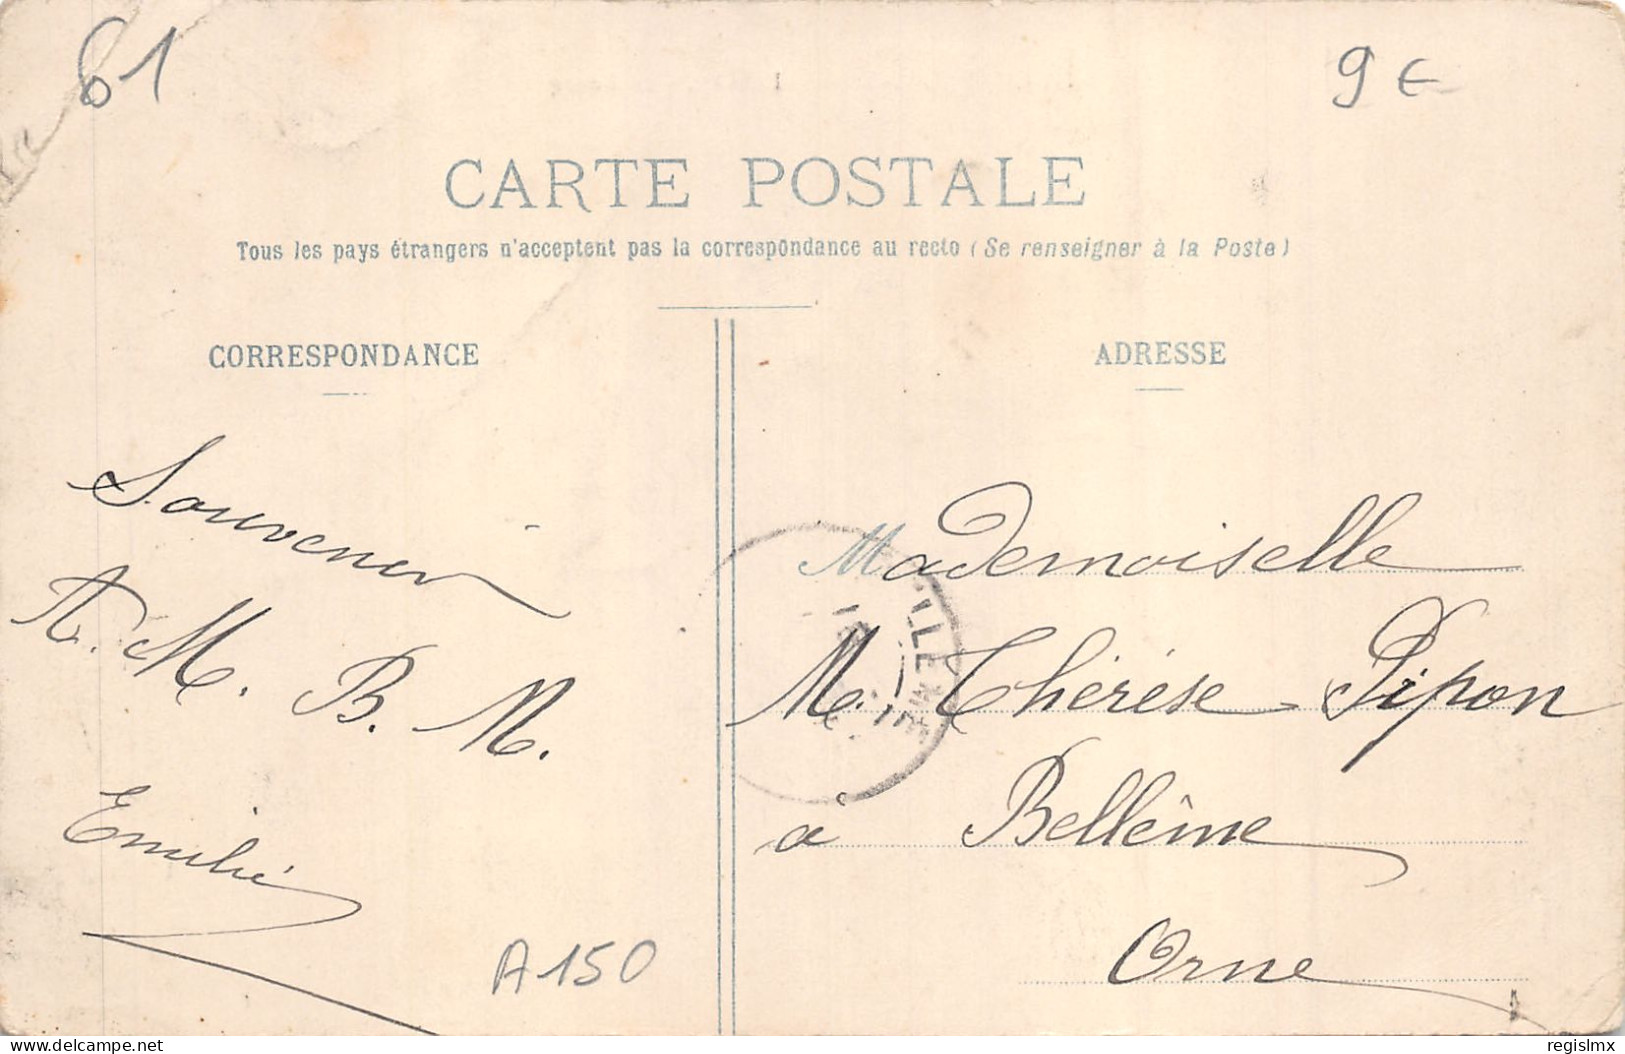 61
9 €
CARTE POSTALE
Tous les pays étrangers n'acceptent pas la correspondance au recto (Se renseigner à la Poste)
CORRESPONDANCE
ADRESSE
Souvenir
A. M. B. M.
Emilie
A150
Mademoiselle
M. Thérèse Pipon
à Bellême
Orne
delcampe.net
regislmx